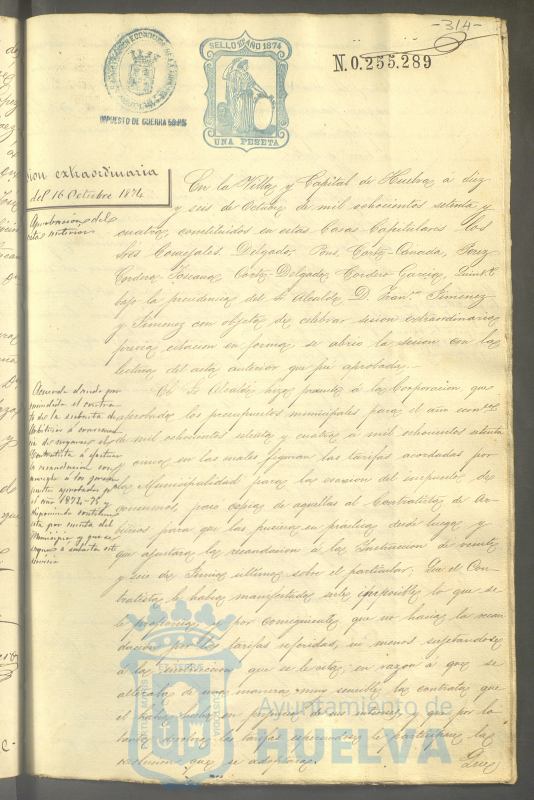 -314-
SELLO 11º AÑO 1874
N.0.255.289
IMPUESTO DE GUERRA 50 Cs
UNA PESETA
sion extraordinaria
del 16 Octubre 1874
Aprobacion del
acta anterior
En la Villa y Capital de Huelva á diez
y seis de Octubre de mil ochocientos setenta y
cuatro, constituidos en estas Casas Capitulares los
Sres Concejales Delgado, Pons, Cortés-Canada, Perez
Cordero-Toscano, Cortés-Delgado, Cordero Garcia,
bajo la presidencia del Sr Alcalde D. Franco Jimenez
y Jimenez con objeto de celebrar sesion extraordinaria
previa citacion en forma, se abrió la sesion con la
lectura del acta anterior que fué aprobada.
Acuerdo dando por
rescindido el contra
to de la subasta de
Arbitrios á consecuen
cia de negarse el
Contratista á efectuar
la recaudacion con
arreglo á los presu
puestos aprobados pa
el año 1874-75 y
disponiendo continúe
esta por cuenta del
Municipio y que se
saque á subasta este
servicio
El Sr Alcalde hizo presente á la Corporacion, que
aprobados los presupuestos municipales para el año
de mil ochocientos setenta y cuatro á mil ochocientos setenta
y cinco en los cuales figuran las tarifas acordadas por
la Municipalidad para la exaccion del impuesto de
consumos, paso copia de aquellas al Contratista de Ar
bitrios para que las pusiera en práctica desde luego y
que ajustara la recaudacion á la Instruccion de veinte
y seis de Junio último sobre el particular. Que el Con
tratista le habia manifestado serle imposible lo que se
le proponia y por consiguiente que no hacia la recau
dacion por las tarifas referidas, ni menos sujetandose
á la instruccion que se le cita, en razon á que se
alteraba de una manera muy sensible la contrata que
el habia
las tarifas
resolucion que se adoptara.
Que
PORTUS MARIS ET TERRE CUSTODIA
Ayuntamiento de
HUELVA